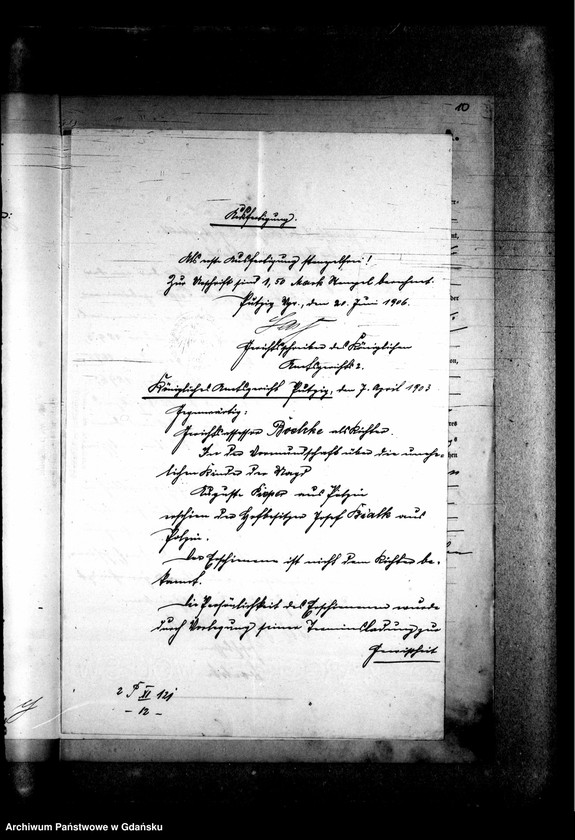 10
Ausfertigung.
Als erste Ausfertigung stempelfrei!
Zur Urschrift sind 1,50 Mark Stempel berechnet.
Putzig Wpr., den 20. Juni 1906.
Gerichtsschreiber des Königlichen
Amtsgerichts 2.
Königliches Amtsgericht Putzig, den 7. April 1903
Gegenwärtig:
Gerichtsassessor Boelcke als Richter.
In der Vormundschaft über die unehe-
lichen Kinder der Magd
Auguste aus Polzin
erschien der Hofbesitzer Josef Bialk aus
Polzin.
Der Erschienene ist nicht dem Richter be-
kannt.
Die Persönlichkeit des Erschienenen wurde
durch Vorlegung seiner Terminsladung zur
Gewissheit
2 P XI 121
- 12 -
Archiwum Państwowe w Gdańsku